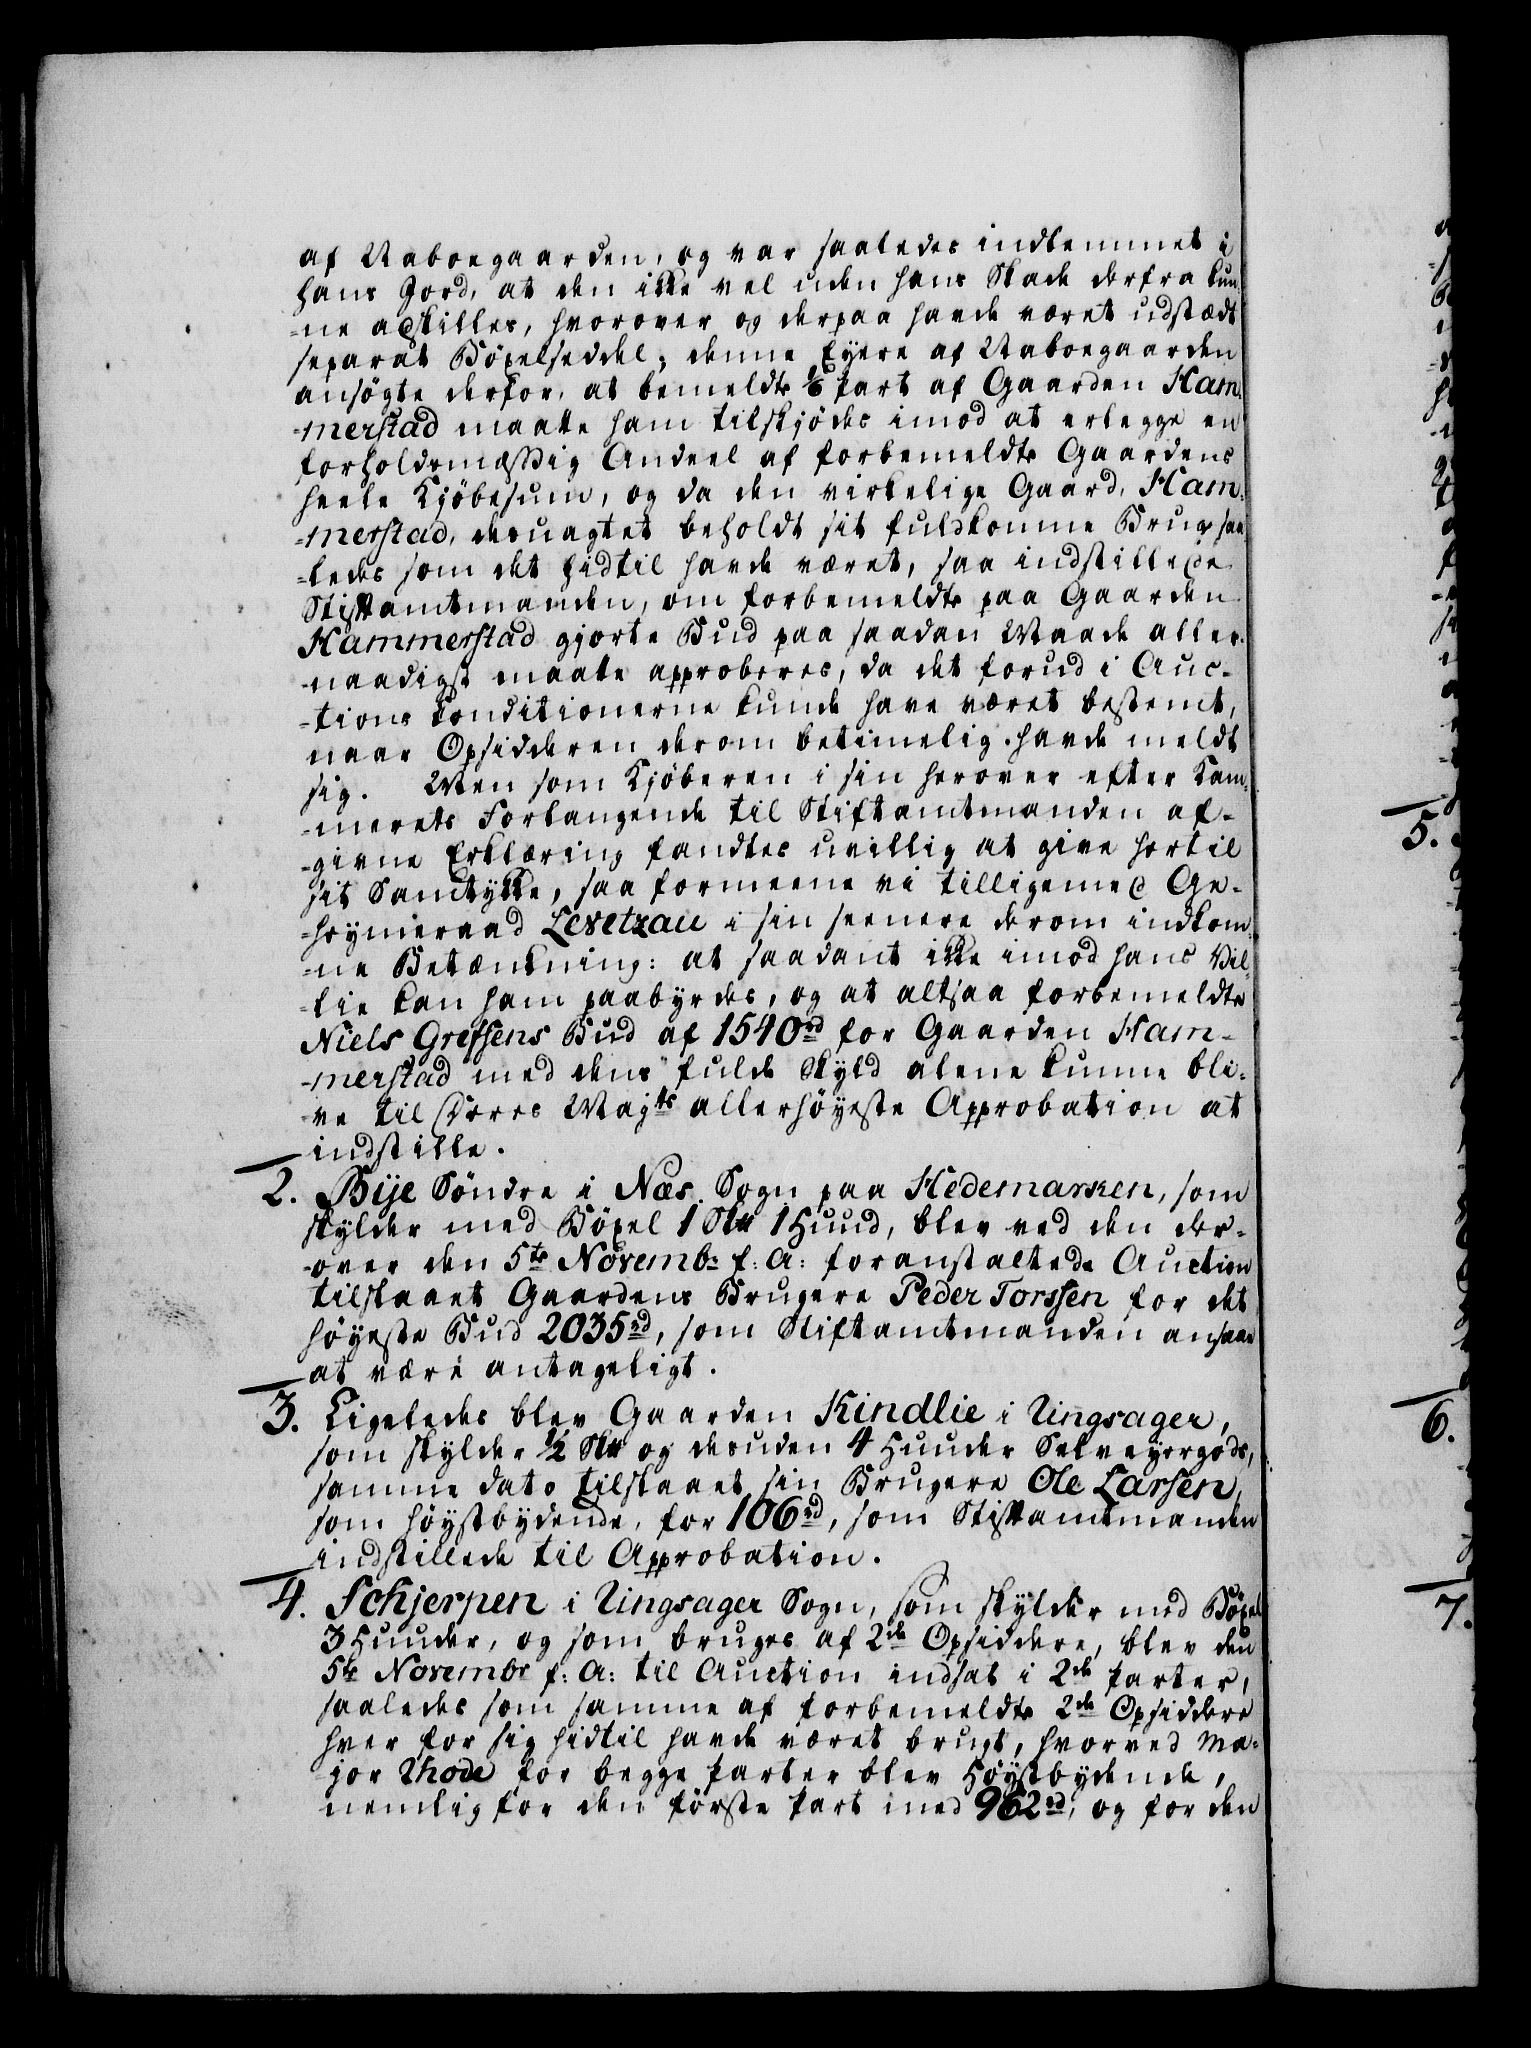 af Naboegaarden, og var saaledes indlemmet i
hans Jord, at den ikke vel uden hans Skade derfra kun-
-ne adskilles, hvorover og derpaa havde været udstædt
separat Böxelseddel; denne Eyere af Naboegaarden
ansögte derfor, at bemeldte 1/6 Part af Gaarden Ham-
-merstad maatte ham tilskjödes imod at erlegge en
forholdsmæssig Andeel af forbemeldte Gaardens
heele Kjöbesum, og da den virkelige Gaard, Ham-
-merstad, desuagtet beholdt sit fuldkomne Brug saa-
-ledes som det hidtil havde været, saa indstillede
Stiftamtmanden, om forbemeldte paa Gaarden
Hammerstad gjorte Bud paa saadan Maade aller-
-naadigst maatte approberes, da det forud i Auc-
-tions Conditionerne kunde have været bestemt,
naar Opsidderen derom betimelig havde meldt
sig. Men som Kjöberen i sin herover efter Kam-
-merets Forlangende til Stiftamtmanden af-
-givne Erklæring fandtes uvillig at give hertil
sit Samtykke, saa formeene vi tilligemed Ge-
-heymeraad Levetzau i sin seenere derom indkom-
-ne Betænkning: at saadant ikke imod hans Vil-
-lie kan ham paabyrdes, og at altsaa forbemeldte
Niels Grefsens Bud af 1540 rd for Gaarden Ham-
-merstad med dens fulde Skyld alene kunne bli-
-ve til Deres Majts allerhöyeste Approbation at
indstille.
2. Bije Söndre i Næs Sogn paa Hedemarken, som
skylder med Böxel 1 Skp 1 Huud, blev ved den der-
-over den 5te Novembr f: A: foranstaltede Auction
tilslaaet Gaardens Brugere Peder Torssen for det
höyeste Bud 2035 rd, som Stiftamtmanden ansaae
at være antageligt.
3. Ligeledes blev Gaarden Kindlie i Ringsager,
som skylder 1/2 Skp og desuden 4 Huuder Selveyergods,
samme dato tilslaaet sin Brugere Ole Larsen,
som höystbydende, for 106 rd, som Stiftamtmanden
indstillede til Approbation.
4. Schjerpen i Ringsager Sogn, som skylder med Böxel
3 Huuder, og som bruges af 2de Opsiddere, blev den
5te Novembr f: A: til Auction indsat i 2de Parter,
saaledes som samme af forbemeldte 2de Opsiddere
hver for sig hidtil havde været brugt, hvorved Ma-
-jor Rhode for begge Parter blev Höystbydende,
nemlig for den förste Part med 962 rd, og for den
5.
6.
7.